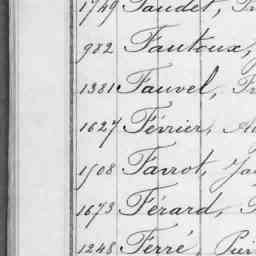 1749 Faudet,
982 Fautoux,
1381 Fauvel,
1627 Février,
1508 Favrot,
1673 Férard,
1248 Ferré,